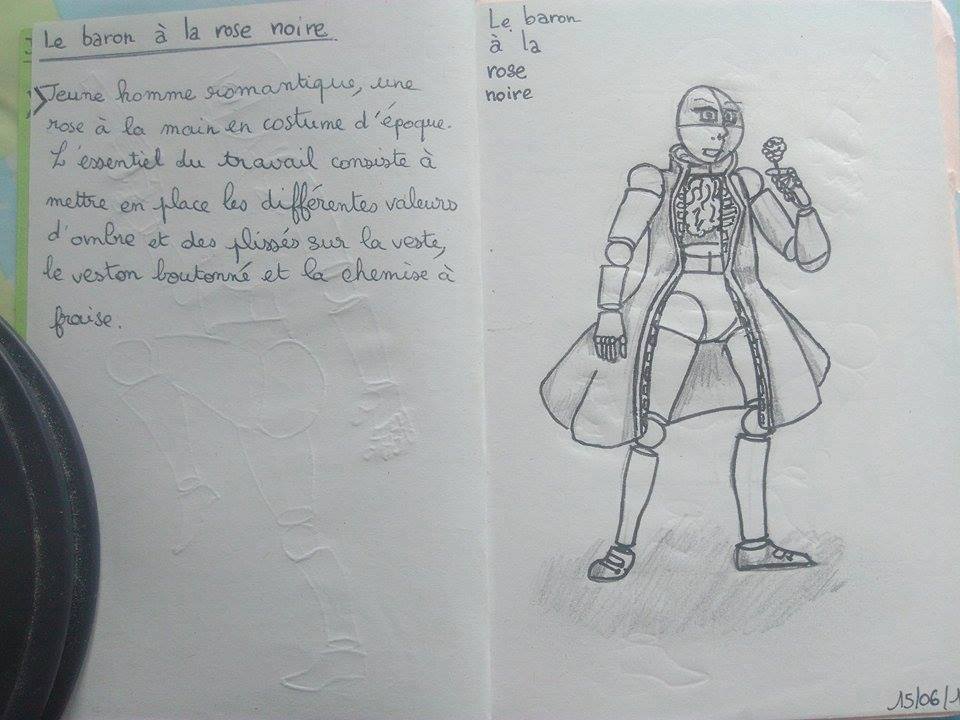 Le baron à la rose noire
Jeune homme romantique, une
rose à la main en costume d'époque.
L'éssentiel du travail consiste à
mettre en place les différentes valeurs
d'ombre et des plissés sur la veste,
le veston boutonné et la chemise à
fraise.
Le baron
à la
rose
noire
15/06/1